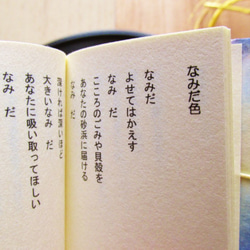 なみだ色
なみだ
よせてはかえす
なみ　だ
こころのごみや貝殻を
あなたの砂浜に届ける
なみ　だ
深ければ深いほど
大きいなみ　だ
あなたに吸い取ってほしい
なみ　だ